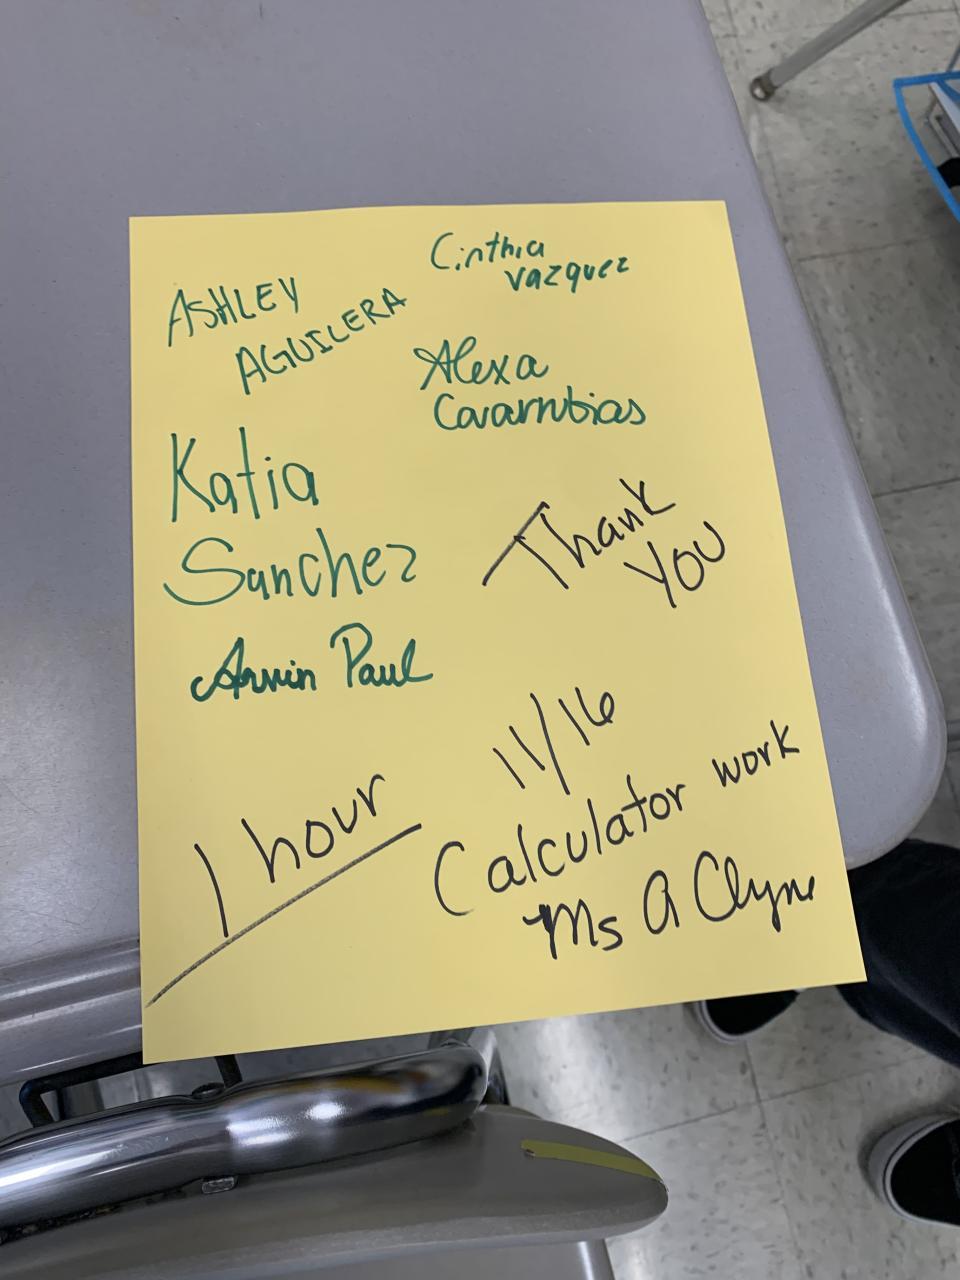 ASHLEY
AGUILERA
Cinthia
Vazquez
Alexa
Covarrubias
Katia
Sanchez
Arvin Paul
Thank
YOU
11/16
1 hour
Calculator work
Ms A Clyne